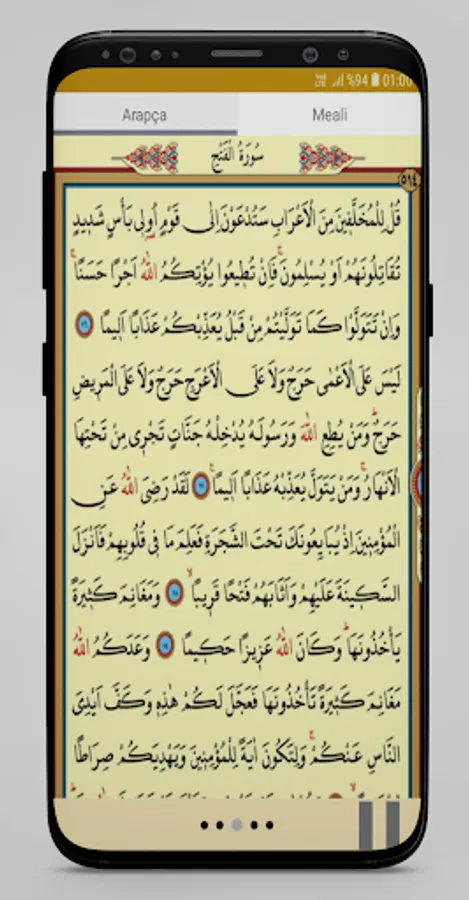 %94 01:00
Arapça Meali
سُورَةُ الْفَتْحِ
٥١٤
قُلْ لِلْمُخَلَّفِينَ مِنَ الْاَعْرَابِ سَتُدْعَوْنَ اِلٰى قَوْمٍ اُو۬لِى بَأْسٍ شَدِيدٍ
تُقَاتِلُونَهُمْ اَوْ يُسْلِمُونَۚ فَاِنْ تُطِيعُوا يُؤْتِكُمُ اللّٰهُ اَجْرًا حَسَنًاۚ
وَاِنْ تَتَوَلَّوْا كَمَا تَوَلَّيْتُمْ مِنْ قَبْلُ يُعَذِّبْكُمْ عَذَابًا اَلِيمًا ١٦
لَيْسَ عَلَى الْاَعْمٰى حَرَجٌ وَلَا عَلَى الْاَعْرَجِ حَرَجٌ وَلَا عَلَى الْمَرِيضِ
حَرَجٌۜ وَمَنْ يُطِعِ اللّٰهَ وَرَسُولَهُ يُدْخِلْهُ جَنَّاتٍ تَجْرِى مِنْ تَحْتِهَا
الْاَنْهَارُۚ وَمَنْ يَتَوَلَّ يُعَذِّبْهُ عَذَابًا اَلِيمًا۟ ١٧ لَقَدْ رَضِىَ اللّٰهُ عَنِ
الْمُؤْمِنِينَ اِذْ يُبَايِعُونَكَ تَحْتَ الشَّجَرَةِ فَعَلِمَ مَا فِى قُلُوبِهِمْ فَاَنْزَلَ
السَّكِينَةَ عَلَيْهِمْ وَاَثَابَهُمْ فَتْحًا قَرِيبًاۙ ١٨ وَمَغَانِمَ كَثِيرَةً
يَأْخُذُونَهَاۜ وَكَانَ اللّٰهُ عَزِيزًا حَكِيمًا ١٩ وَعَدَكُمُ اللّٰهُ
مَغَانِمَ كَثِيرَةً تَأْخُذُونَهَا فَعَجَّلَ لَكُمْ هٰذِهِ وَكَفَّ اَيْدِىَ
النَّاسِ عَنْكُمْۚ وَلِتَكُونَ اٰيَةً لِلْمُؤْمِنِينَ وَيَهْدِيَكُمْ صِرَاطًا